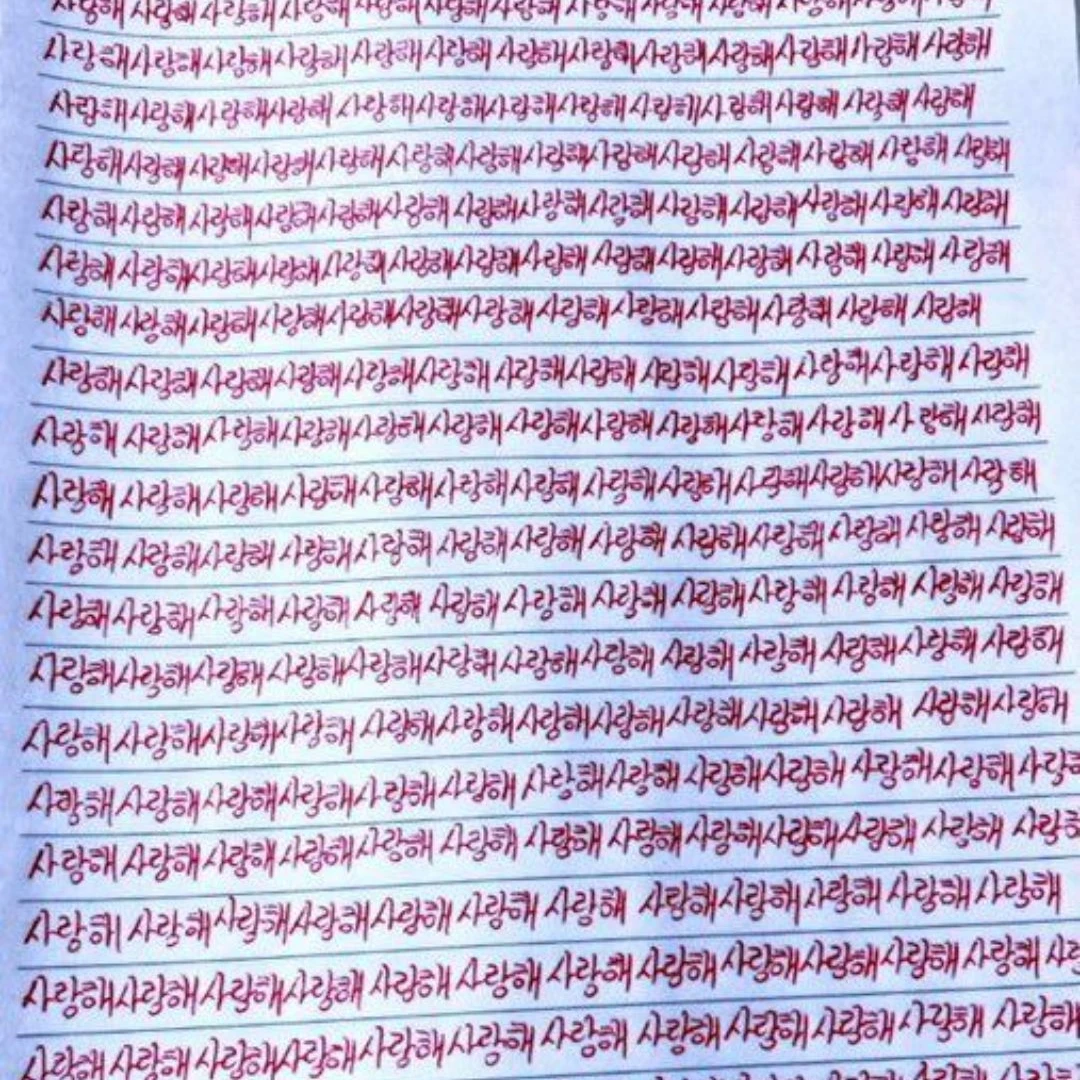 사랑해 사랑해 사랑해 사랑해 사랑해 사랑해 사랑해 사랑해 사랑해 사랑해 사랑해 사랑해 사랑해
사랑해 사랑해 사랑해 사랑해 사랑해 사랑해 사랑해 사랑해 사랑해 사랑해 사랑해 사랑해 사랑해
사랑해 사랑해 사랑해 사랑해 사랑해 사랑해 사랑해 사랑해 사랑해 사랑해 사랑해 사랑해 사랑해
사랑해 사랑해 사랑해 사랑해 사랑해 사랑해 사랑해 사랑해 사랑해 사랑해 사랑해 사랑해 사랑해 사랑해
사랑해 사랑해 사랑해 사랑해 사랑해 사랑해 사랑해 사랑해 사랑해 사랑해 사랑해 사랑해 사랑해 사랑해
사랑해 사랑해 사랑해 사랑해 사랑해 사랑해 사랑해 사랑해 사랑해 사랑해 사랑해 사랑해 사랑해 사랑해
사랑해 사랑해 사랑해 사랑해 사랑해 사랑해 사랑해 사랑해 사랑해 사랑해 사랑해 사랑해 사랑해
사랑해 사랑해 사랑해 사랑해 사랑해 사랑해 사랑해 사랑해 사랑해 사랑해 사랑해 사랑해 사랑해
사랑해 사랑해 사랑해 사랑해 사랑해 사랑해 사랑해 사랑해 사랑해 사랑해 사랑해 사랑해 사랑해
사랑해 사랑해 사랑해 사랑해 사랑해 사랑해 사랑해 사랑해 사랑해 사랑해 사랑해 사랑해 사랑해
사랑해 사랑해 사랑해 사랑해 사랑해 사랑해 사랑해 사랑해 사랑해 사랑해 사랑해 사랑해 사랑해
사랑해 사랑해 사랑해 사랑해 사랑해 사랑해 사랑해 사랑해 사랑해 사랑해 사랑해 사랑해 사랑해
사랑해 사랑해 사랑해 사랑해 사랑해 사랑해 사랑해 사랑해 사랑해 사랑해 사랑해 사랑해 사랑해
사랑해 사랑해 사랑해 사랑해 사랑해 사랑해 사랑해 사랑해 사랑해 사랑해 사랑해 사랑해 사랑해
사랑해 사랑해 사랑해 사랑해 사랑해 사랑해 사랑해 사랑해 사랑해 사랑해 사랑해 사랑해 사랑
사랑해 사랑해 사랑해 사랑해 사랑해 사랑해 사랑해 사랑해 사랑해 사랑해 사랑해 사랑해 사랑
사랑해 사랑해 사랑해 사랑해 사랑해 사랑해 사랑해 사랑해 사랑해 사랑해 사랑해 사랑해
사랑해 사랑해 사랑해 사랑해 사랑해 사랑해 사랑해 사랑해 사랑해 사랑해 사랑해 사랑해 사랑
사랑해 사랑해 사랑해 사랑해 사랑해 사랑해 사랑해 사랑해 사랑해 사랑해 사랑해 사랑해